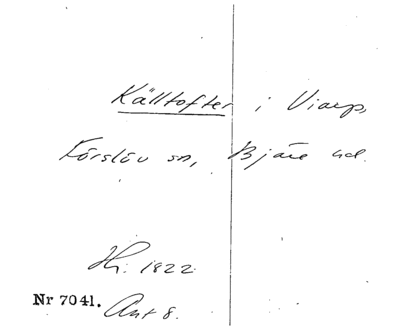 Källtofter i Viarp,
Förslöv sn, Bjäre hd.
Hi. 1822
Nr 7041. Akt 8.